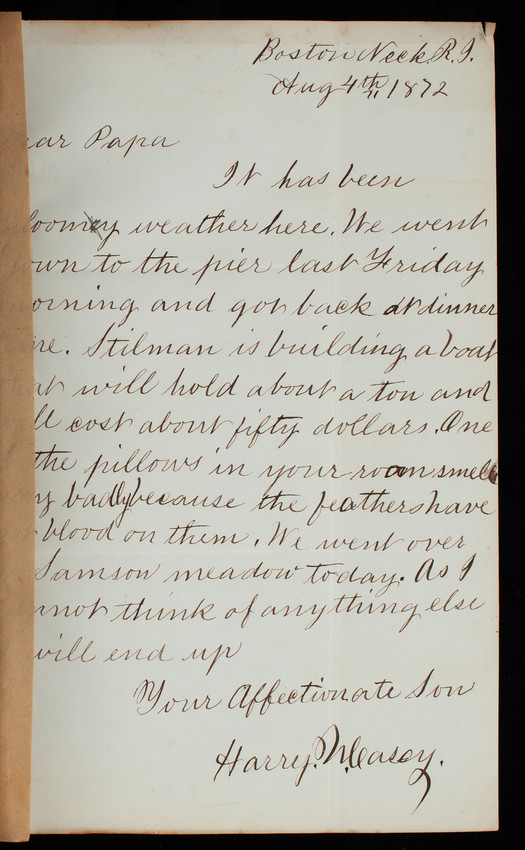 Boston Neck R.I.
Aug 4th, 1872
ear Papa
It has been
loomy weather here. We went
own to the pier last Friday
orning and got back at dinner
me. Stilman is building a boat
hat will hold about a ton and
ll cost about fifty dollars. One
the pillows in your room smells
ry badly because the feathers have
blood on them. We went over
Samson meadow today. As I
nnot think of anything else
will end up
Your Affectionate Son
Harry. Casey.